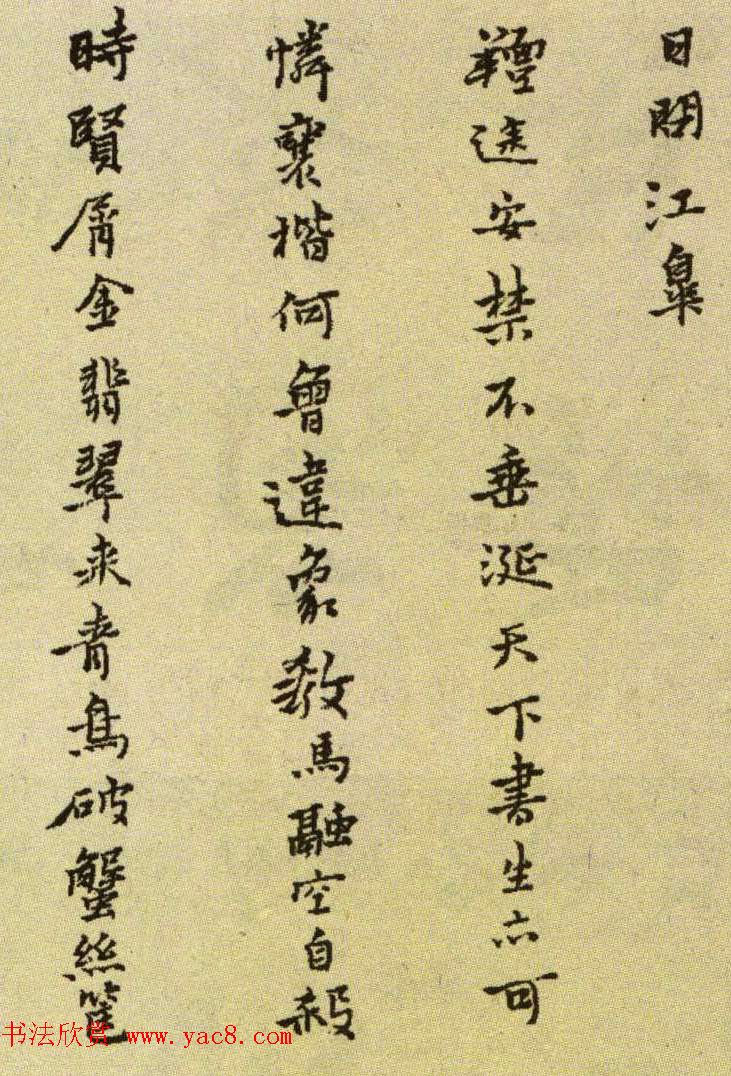 日江皐
羶途安禁不垂涎天下書生亦可
憐襄楷何曾違象教馬融空自殺
時賢屑金翡翠来青鳥破蟹絲
书法欣赏 www.yac8.com